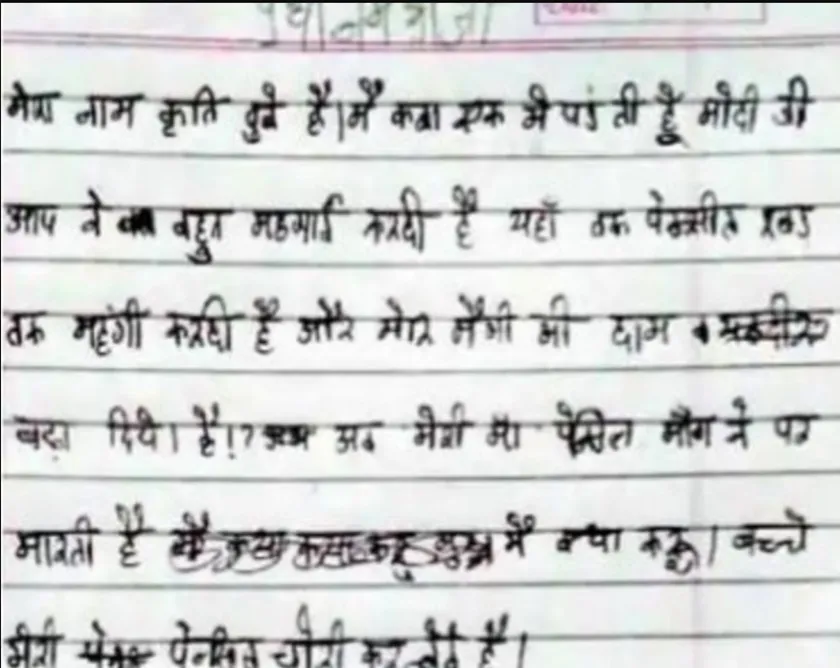 प्रधानमंत्री जी
मेरा नाम कृति दुबे है। मैं कक्षा एक में पढं ती हूँ मोदी जी
आप ने बहुत महगाई करदी है यहाँ तक पेन्सील रबड
तक महंगी करदी है और मेरि मैगी की दाम
बढ़ा दिये। है!? अब मेरी माँ पेंसिल माँग ने पर
मारती है मैं क्या करू। बच्चे
मेरी पेनसिल चोरी कर लेते है।